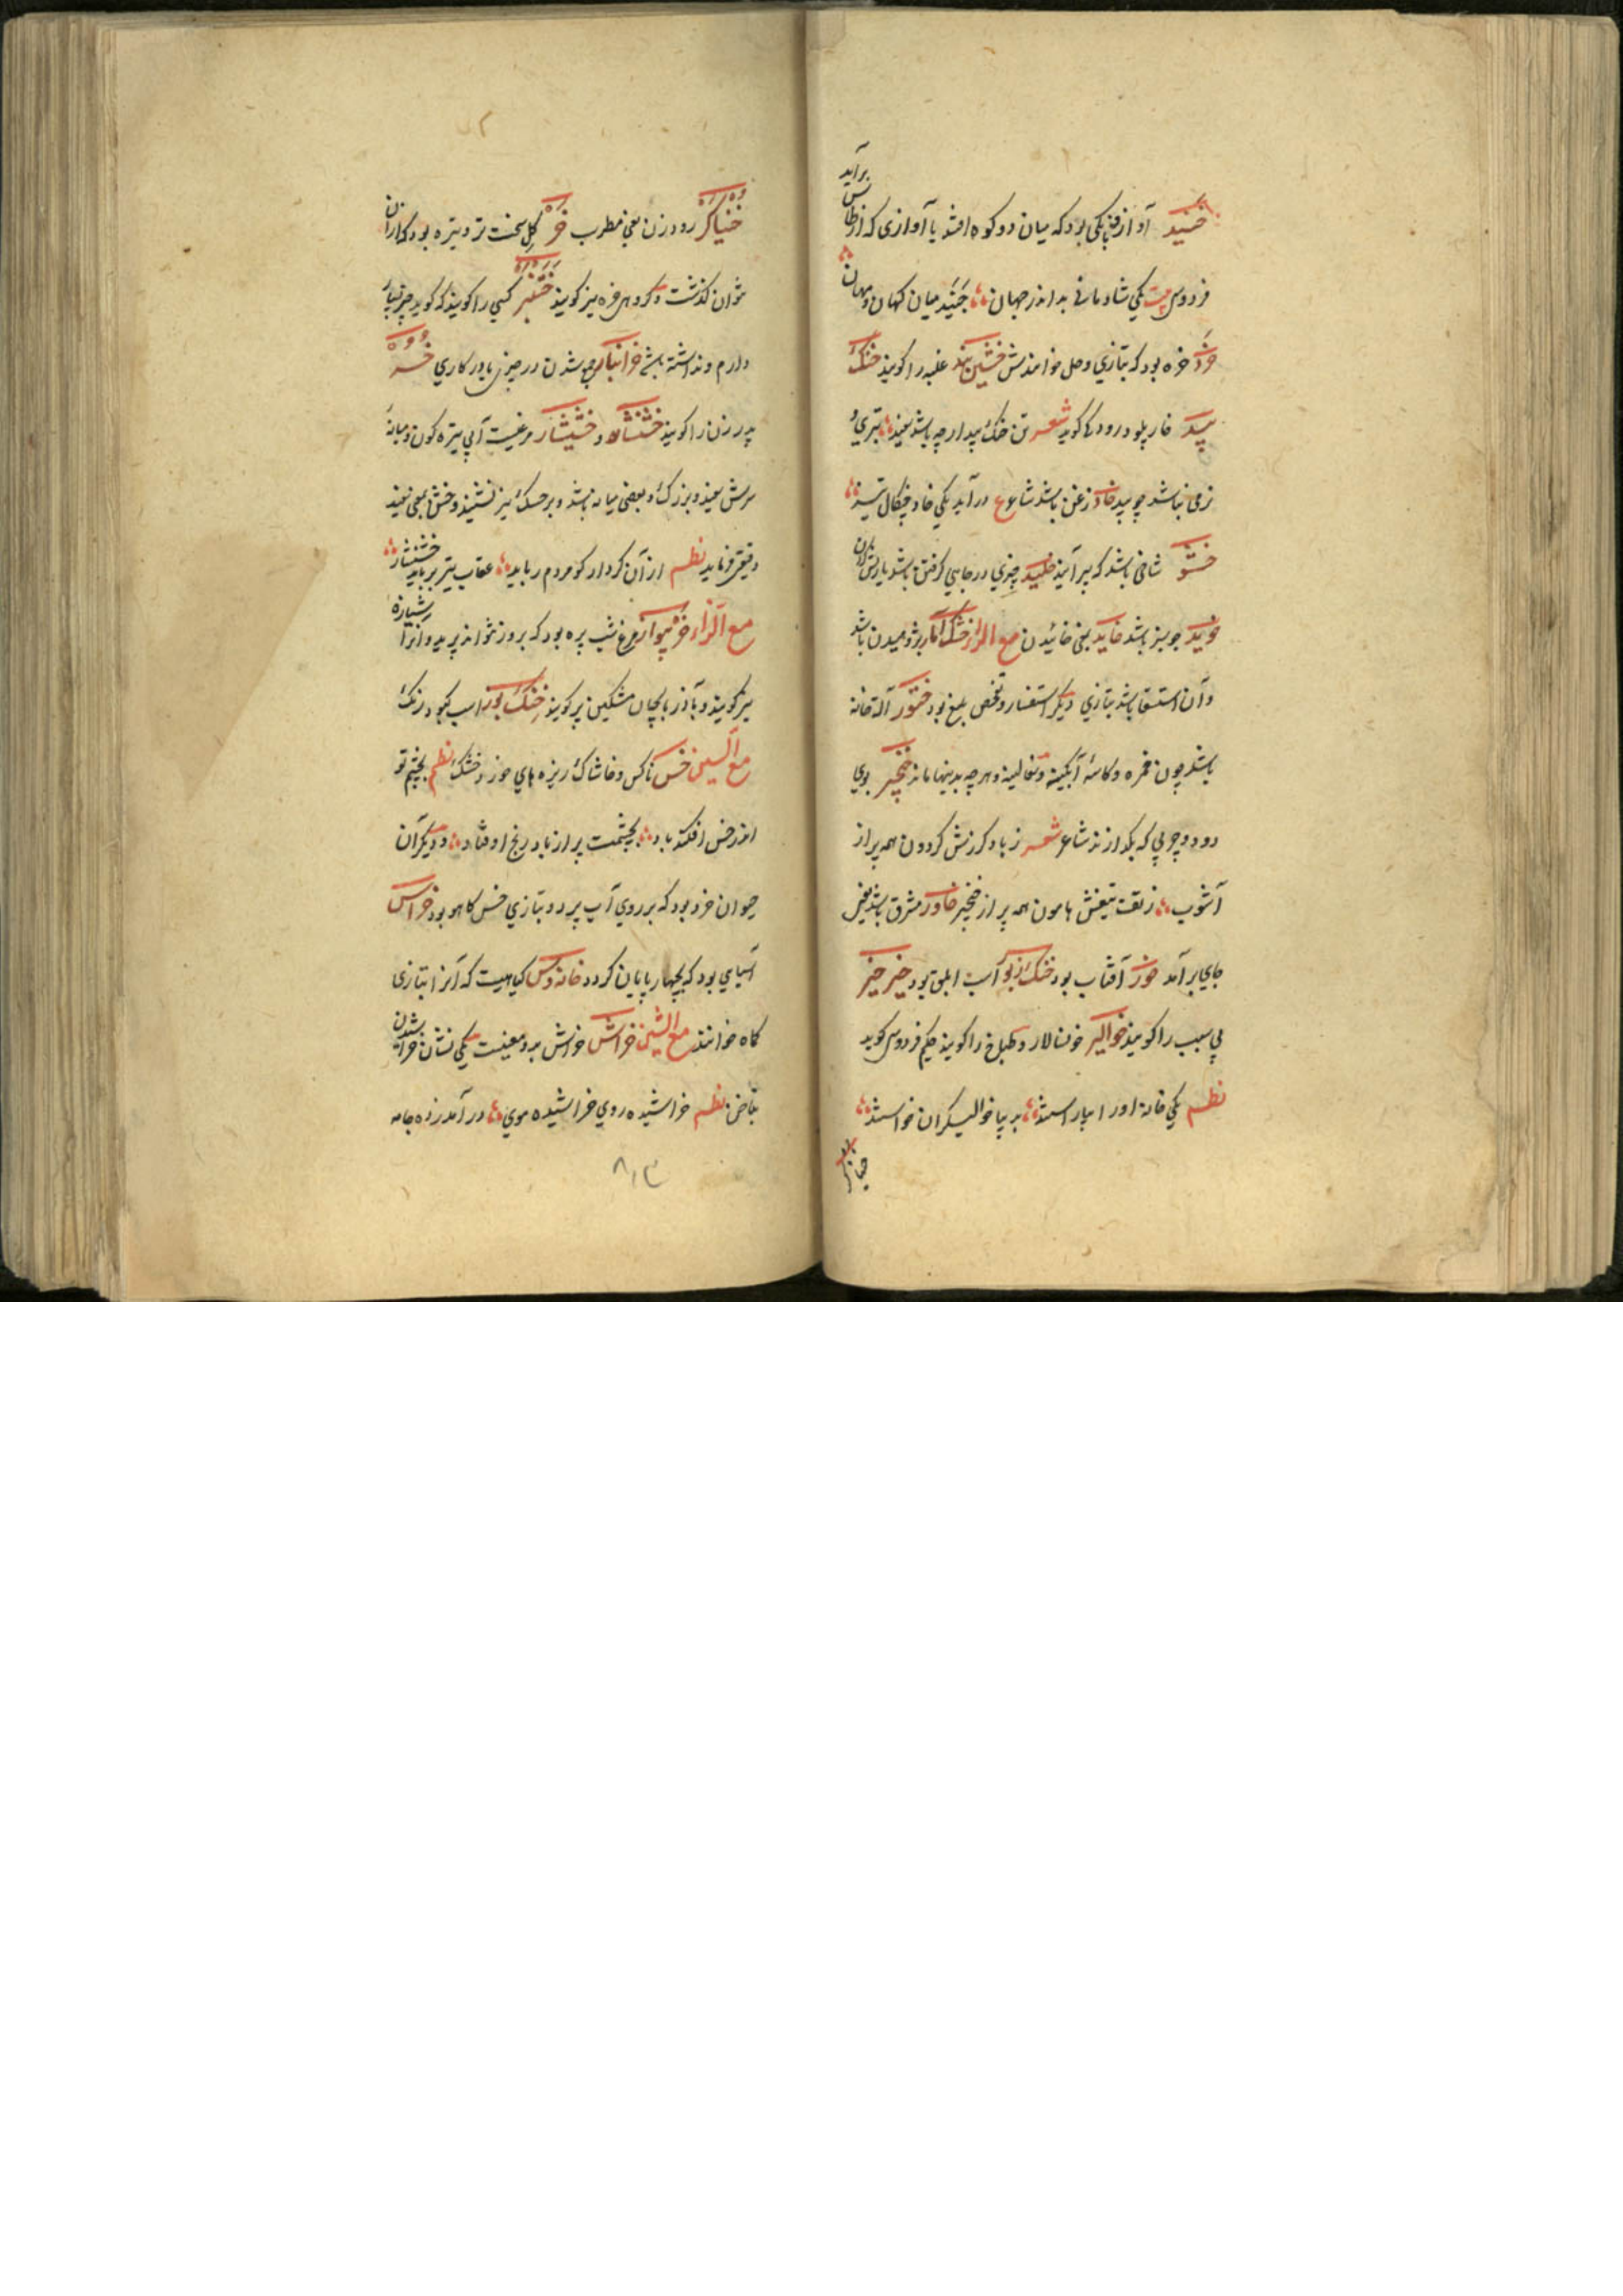 خنید آواز فنکی بود که میان دو کوه افتد یا آوازی که از طاس برآید
فردوسی بیت یکی شادمانی بد اندر جهان خنید میان کهان و مهان
خرد خره بود که بتازی وحل خوانندش خشین بند غلبه را کویند خنک
بید خار پلو درودکی کوید شعر تن خنک بید ارچه باشد سفید بتری و
نرمی نباشد چو بید خاد زغن باشد شاعر ع در آید یکی خاد چنکال تیز
خستو شاخی باشد که بیرآیند خلید چیزی در جایی کرفتن باشد
خوید جو سبز باشد خاید یعنی خائیدن مع الراء خشک آمار پژوهیدن باشد
وآن استسقا باشد بتازی دیکر استفسار و تفحص بلیغ بود خنور آلت خانه
باشد چون خمره و کاسهٔ آبکینه و سفالینه و هرچه بدینها ماند خنجیر بوی
دود و چربی که بکدازند شاعر شعر ز باد کرزش کردون همه پر از
آشوب ز تفت تیغش هامون همه پر از خنجیر خاور مشرق باشد یعنی
جای برآمد خور آفتاب بود خنک زیور اسب ابلق بود خیر خیر
بی سبب را کویند خوالیکر خونسالار و طباخ را کویند حکیم فردوسی کوید
نظم یکی خانه او را بیاراستند به پیا خوالیکران خواستند
خنیاکر
خنیاکر رود زن یعنی مطرب خر کل سخت تر و تیره بود که از آن
نتوان کذشت و کروهی خره نیز کویند ختنبر کسی را کویند که کوید چیز بسیار
دارم و نداشته باشد خرانبار جمع شدن در چیزی یا در کاری خسر
پدر زن را کویند خشنسار و خشیشار مرغیست آبی تیره کون و میانهٔ
سرش سفید و بزرک و بعضی میانه باشد و بر خشک نیز نشیند و خش یعنی سفید
دقیقی فرماید نظم از آن کردار کو مردم رباید عقاب تیز برباید خشنشار
مع الزاء خربیواز مرغ شب پره بود که بروز نتواند پرید و او را شبیازه
نیز کویند و بآذربایجان مشکین پر کویند خنک بوز اسب کبود رنک
مع السین خس ناکس و خاشاک ریزه های خوزد خشک نظم بچشم تو
اندر خس افکند باد بچشمت بر از باد رنج اوفتاد و دیکر آن
حیوان خرد بود که بر روی آب پرد و بتازی خس کاهو بود خراس
آسیایی بود که بچهارپایان کردد خانه وس کیاهیست که آنرا بتازی
کاه خوانند مع الشین خراش خراش به دو معنیست یکی نشان خراشیدن
بناخن نظم خراشیده روی خراشیده موی درآمد زده جامه
۸۱۳